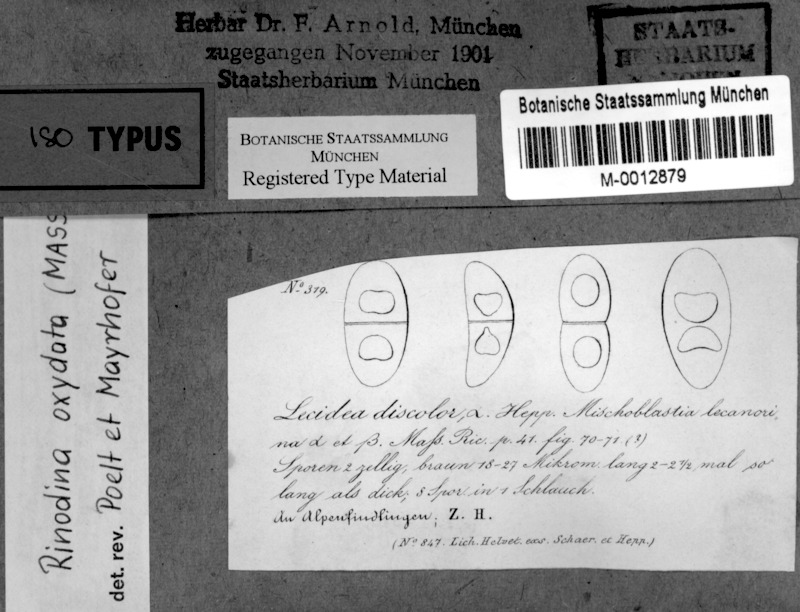 Herbar Dr. F. Arnold, München
zugegangen November 1901
Staatsherbarium München
STAATS-
HERBARIUM
MÜNCHEN
Botanische Staatssammlung München
M-0012879
ISO TYPUS
BOTANISCHE STAATSSAMMLUNG
MÜNCHEN
Registered Type Material
Rinodina oxydata (MASS
det. rev. Poelt et Mayrhofer
No. 319.
Lecidea discolor, α. Hepp. Mischoblastia lecanori,
na α et β. Maſs. Ric. p. 41. fig. 70-71. (3)
Sporen 2 zellig, braun 18-27 Mikrom. lang 2-2½ mal so
lang als dick; 8 Spor. in 1 Schlauch.
An Alpenfindlingen; Z. H.
(No. 847. Lich. Helvet. exs. Schaer. et Hepp.)